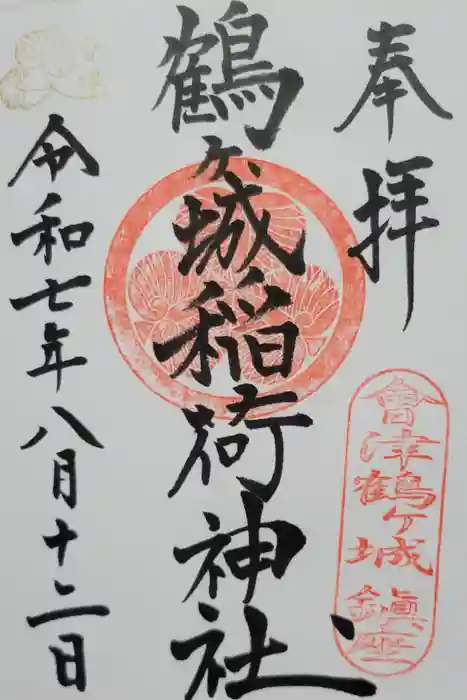 奉拝
會津鶴ヶ城鎮座
鶴ヶ城稲荷神社
令和七年八月十二日